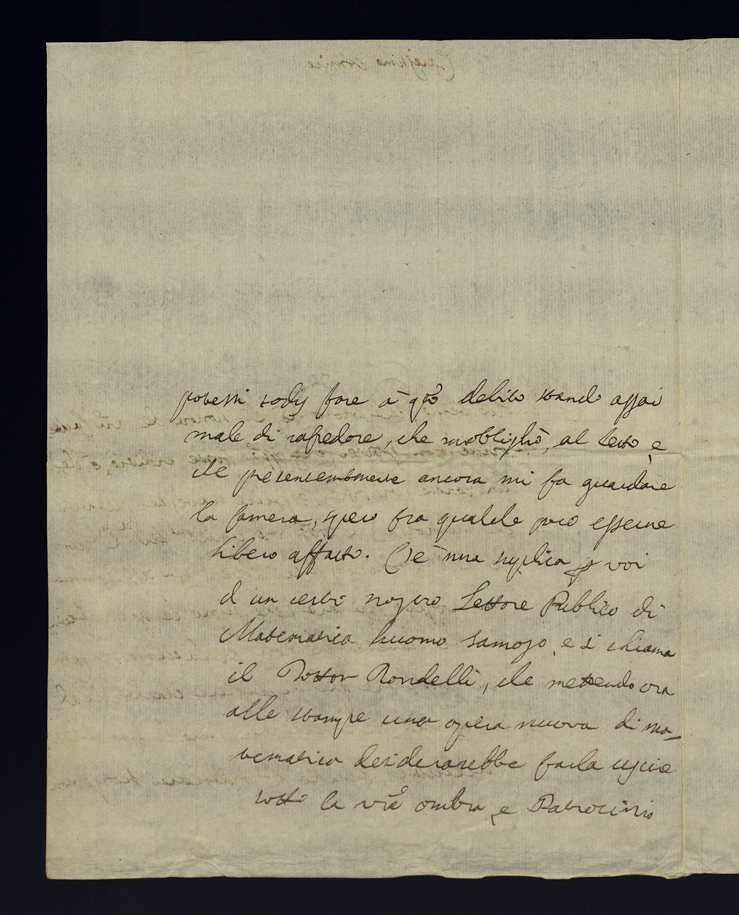 potessi sodisfare à q.to debito stando assai
male di rafredore, che m'obblighò, al letto, e
che presentemente ancora mi fa guardare
la camera, spero fra qualche poco esserne
libero affatto. C'è una suplica p voi
d un certo nostro Lettore Publico di
Matematica huomo famoso, e si chiama
il Dottor Rondelli, che mettendo ora
alle stampe una opera nuova di ma-
tematica desiderarebbe farla uscire
sotto la vrã ombra, e Patrocinio